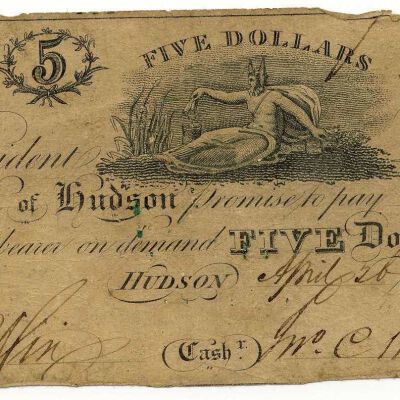 5 FIVE DOLLARS
ident
of Hudson promise to pay
bearer on demand FIVE Do
HUDSON April 26
Cash.r